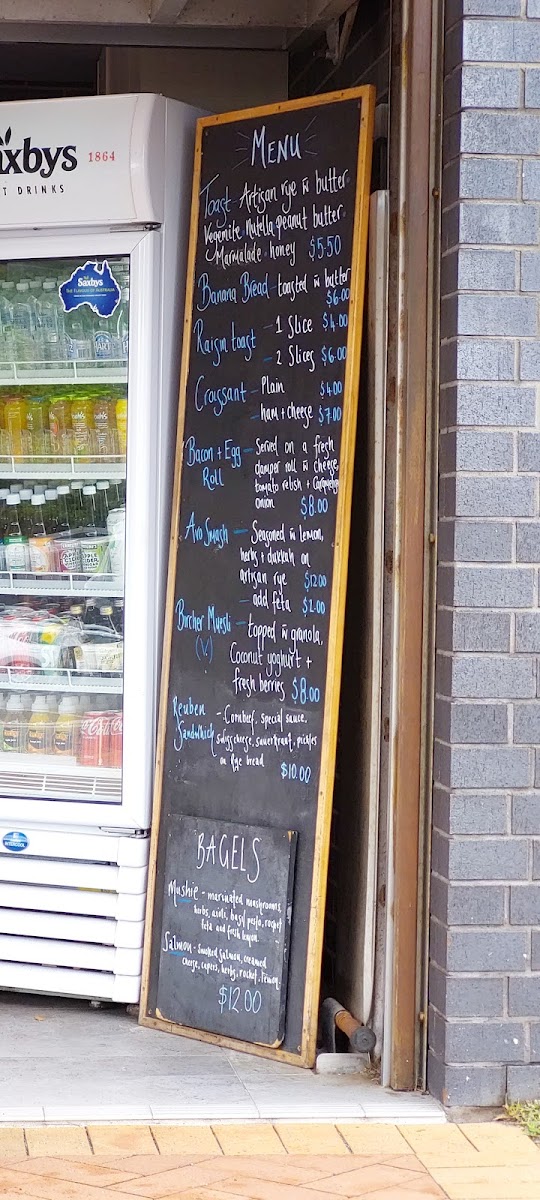 axbys 1864
T DRINKS
Saxbys
MENU
Toast - Artisan rye w butter
Vegemite, nutella, peanut butter
Marmalade · honey $5.50
Banana Bread - toasted w butter
$6.00
Raisin toast - 1 Slice $4.00
- 2 Slices $6.00
Croissant - Plain $4.00
- ham + cheese $7.00
Bacon + Egg - Served on a fresh
Roll damper roll w cheese,
tomato relish + Caramelised
onion $8.00
Avo Smash - Seasoned w lemon,
herbs + dukkah on
artisan rye $12.00
- add feta $2.00
Bircher Muesli - topped w granola,
(V) Coconut yoghurt +
fresh berries $8.00
Reuben - Cornbeef, special sauce,
Sandwhich swisscheese, sauerkraut, pickles
on Rye bread
$10.00
BAGELS
Mushie - marinated mushrooms,
herbs, aioli, basil pesto, rocket
feta and fresh lemon
Salmon - Smoked salmon, creamed
cheese, capers, herbs, rocket, lemon.
$12.00